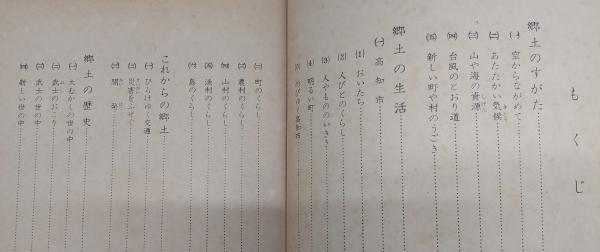 もくじ
郷土のすがた
㈠ 空からながめて
㈡ あたたかい気候
㈢ 山や海の資源
㈣ 台風のとおり道
㈤ 新しい町や村のうごき
郷土の生活
㈠ 高知市
⑴ おいたち
⑵ 人びとのくらし
⑶ 人やもののいきき
⑷ 明るい町
⑸ のびゆく高知市
㈡ 町のくらし
㈢ 農村のくらし
㈣ 山村のくらし
㈤ 漁村のくらし
㈥ 島のくらし
これからの郷土
㈠ ひらけゆく交通
㈡ 災害をふせぐ
㈢ 開発
郷土の歴史
㈠ 大むかしの世の中
㈡ 武士のおこり
㈢ 武士の世の中
㈣ 新しい世の中